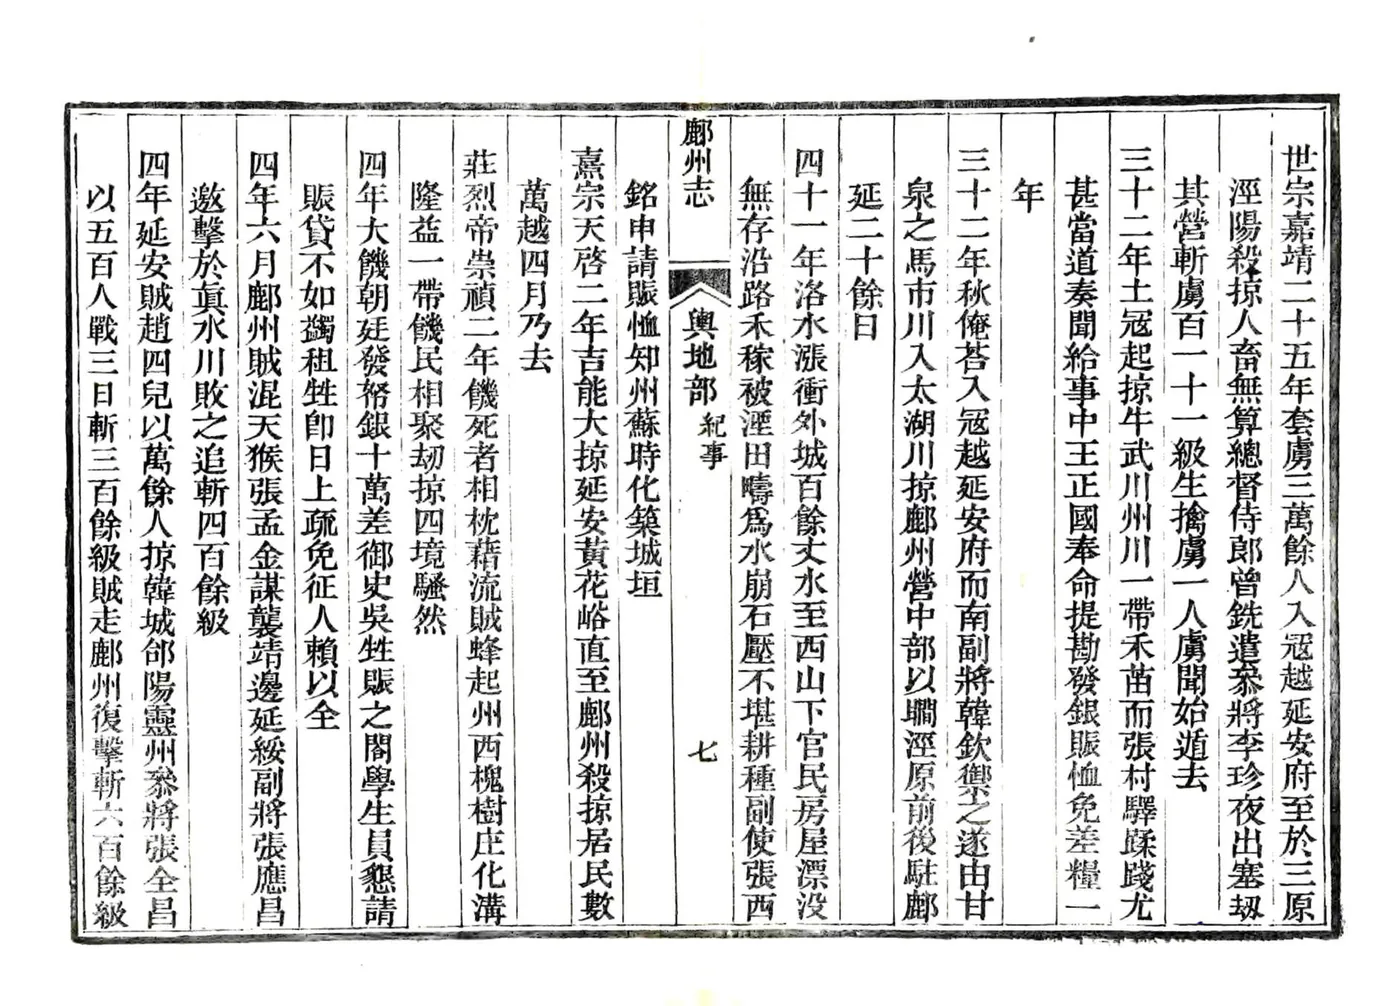 世宗嘉靖二十五年套虜三萬餘人入寇越延安府至於三原
涇陽殺掠人畜無算總督侍郎曾銑遣叅將李珍夜出塞刧
其營斬虜百一十一級生擒虜一人虜聞始遁去
三十二年土寇起掠牛武川州川一帶禾苗而張村驛蹂踐尤
甚當道奏聞給事中王正國奉命提勘發銀賑恤免差糧一
年
三十二年秋俺荅入寇越延安府而南副將韓欽禦之遂由甘
泉之馬市川入太湖川掠鄜州營中部以瞷涇原前後駐鄜
延二十餘日
四十一年洛水漲衝外城百餘丈水至西山下官民房屋漂没
無存沿路禾稼被湮田疇爲水崩石壓不堪耕種副使張西
銘申請賑恤知州蘇時化築城垣
鄜州志
輿地部 紀事
七
熹宗天啓二年吉能大掠延安黃花峪直至鄜州殺掠居民數
萬越四月乃去
莊烈帝崇禎二年饑死者相枕藉流賊蜂起州西槐樹庄化溝
隆益一帶饑民相聚刧掠四境騷然
四年大饑朝廷發帑銀十萬差御史吳甡賑之閤學生員懇請
賑貸不如蠲租甡卽日上疏免征人賴以全
四年六月鄜州賊混天猴張孟金謀襲靖邊延綏副將張應昌
邀擊於眞水川敗之追斬四百餘級
四年延安賊趙四兒以萬餘人掠韓城郃陽靈州叅將張全昌
以五百人戰三日斬三百餘級賊走鄜州復擊斬六百餘級